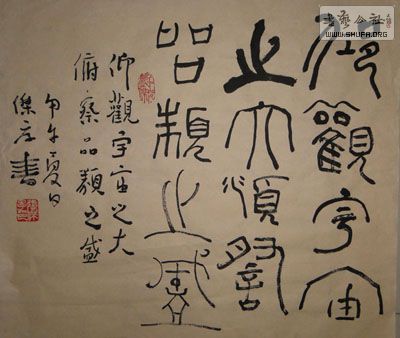 仰觀宇宙
之大俯察
品類之盛
仰觀宇宙之大
俯察品類之盛
甲午夏日
傑書
书艺公社
WWW.SHUFA.ORG